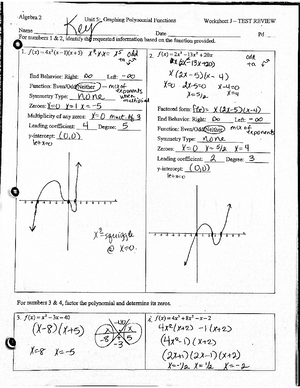 Algebra 2
Unit 5: Graphing Polynomial Functions
Worksheet J – TEST REVIEW
Name Key
Date
Pd
For numbers 1 & 2, identify the requested information based on the function provided.
1. f(x) = 4x³(x – 1)(x + 5)
x³·x·x = x⁵ odd to
End Behavior: Right: ∞ Left: -∞
Function: Even/Odd/Neither mix of exponents when multiplied
Symmetry Type: none
Zeroes: x=0 x=1 x=-5
Multiplicity of any zeros: x=0 mult of 3
Leading coefficient: 4 Degree: 5
y-intercept: (0,0)
let x=0
x³=squiggle
@ x=0.
2. f(x) = 2x³ – 13x² + 20x
odd to
x(2x²-13x+20)
x(2x-5)(x-4)
x=0 2x-5=0 x-4=0
x=5/2 x=4
Factored form: f(x) = x(2x-5)(x-4)
End Behavior: Right: ∞ Left: -∞
Function: Even/Odd/Neither mix of exponents
Symmetry Type: none
Zeroes: x=0 x=5/2 x=4
Leading coefficient: 2 Degree: 3
y-intercept: (0,0)
let x=0
For numbers 3 & 4, factor the polynomial and determine its zeros.
3. f(x) = x² – 3x – 40
(x-8)(x+5)
x=8 x=-5
-40
-8 5
-3
f(x) = 4x³ + 8x² – x – 2
4x²(x+2) -1(x+2)
(4x²-1)(x+2)
(2x+1)(2x-1)(x+2)
x=-1/2 x=1/2 x=-2